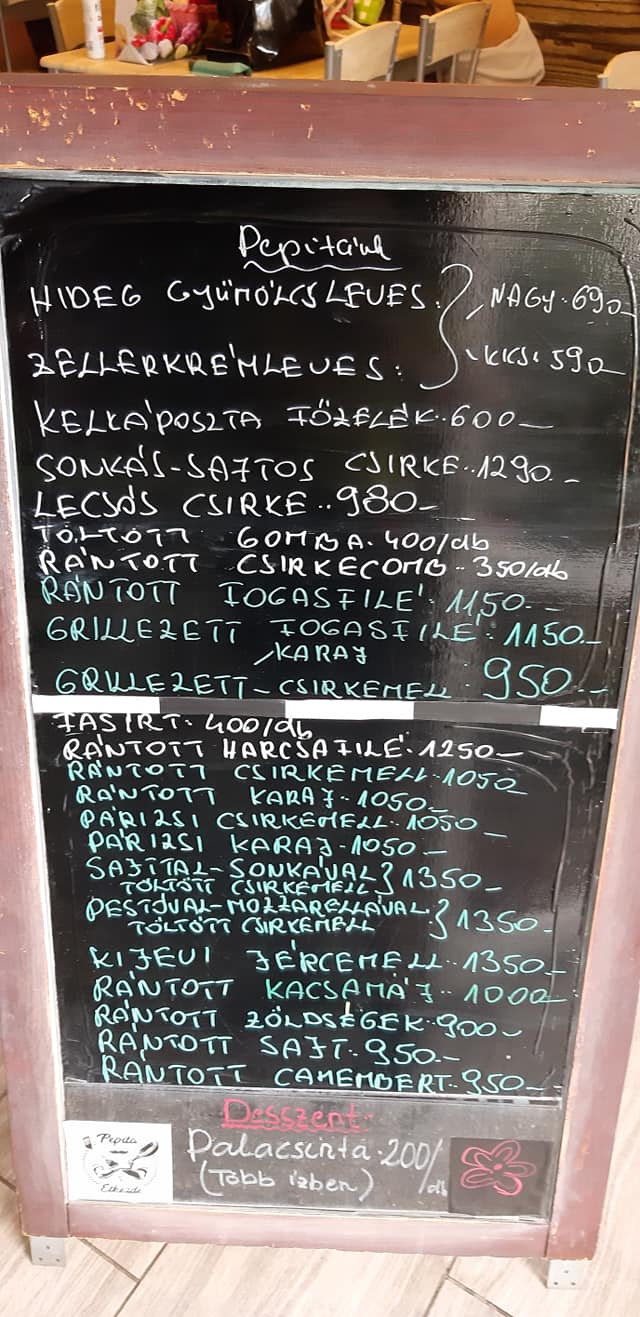 Pepitánk
HIDEG GYÜMÖLCSLEVES. NAGY. 690
ZELLERKRÉMLEVES. KICSI 590
KELKÁPOSZTA FŐZELÉK. 600
SONKÁS-SAJTOS CSIRKE.. 1290.
LECSÓS CSIRKE.. 980
TÖLTÖTT GOMBA. 400/db
RÁNTOTT CSIRKECOMB.. 350/db
RÁNTOTT FOGASFILÉ. 1150.-
GRILLEZETT FOGASFILÉ. 1150.-
/KARAJ
GRILLEZETT-CSIRKEMELL. 950.-
FASÍRT. 400/db
RÁNTOTT HARCSAFILÉ. 1250-
RÁNTOTT CSIRKEMELL. 1050-
RÁNTOTT KARAJ. 1050.-
PÁRIZSI CSIRKEMELL. 1050-
PÁRIZSI KARAJ. 1050.-
SAJTTAL-SONKÁVAL
TÖLTÖTT CSIRKEMELL 1350-
PESTÓVAL-MOZZARELLÁVAL
TÖLTÖTT CSIRKEMELL 1350.
KIJEVI JÉRCEMELL. 1350-
RÁNTOTT KACSAMÁJ. 1000-
RÁNTOTT ZÖLDSÉGEK. 900-
RÁNTOTT SAJT. 950.-
RÁNTOTT CAMEMBERT.. 950-
Desszert.
Palacsinta. 200/db
(Több ízben)
Pepita
Étkezde